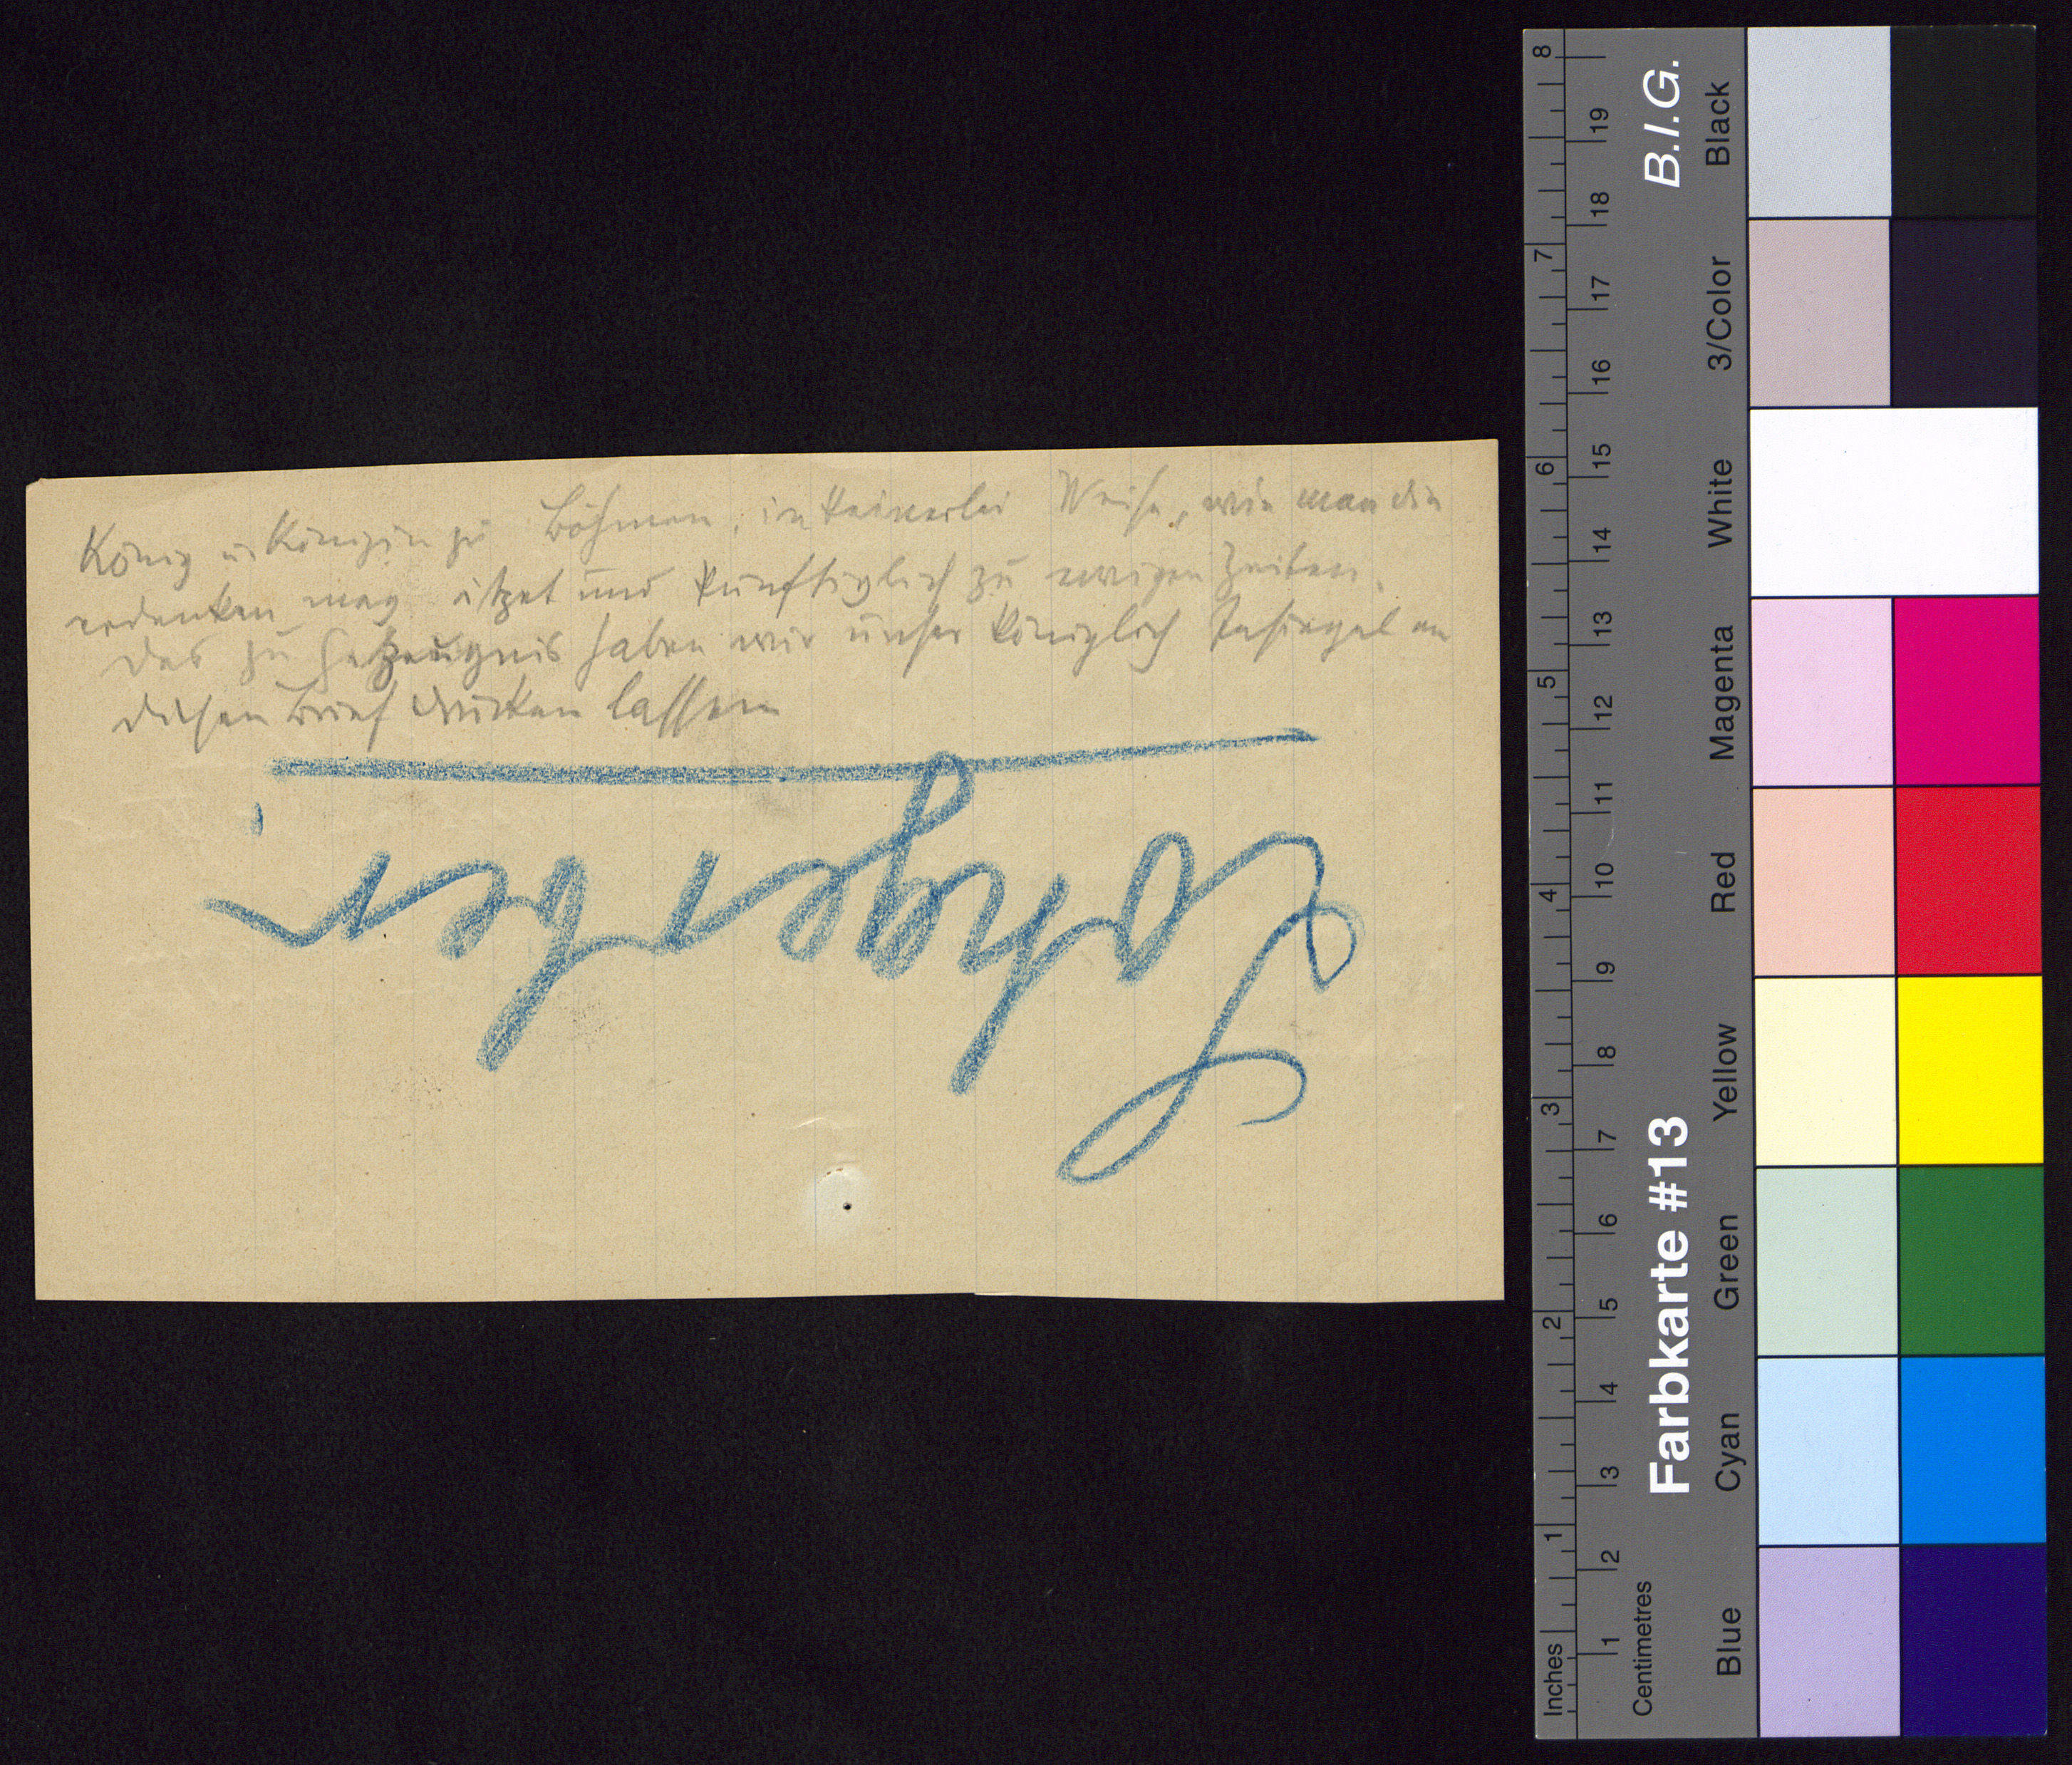 König u Königin zu Böhmen, in keinerlei Weise, wie man die
erdenken mag itzet und künftiglich zu ewigen Zeiten.
Das zu Gezeugnis haben wir unser königlich Insiegel an
diesen Brief drücken lassen
Lohgerber.
Inches 1 2 3 4 5 6 7 8
Centimetres 1 2 3 4 5 6 7 8 9 10 11 12 13 14 15 16 17 18 19
Farbkarte #13 B.I.G.
Blue Cyan Green Yellow Red Magenta White 3/Color Black